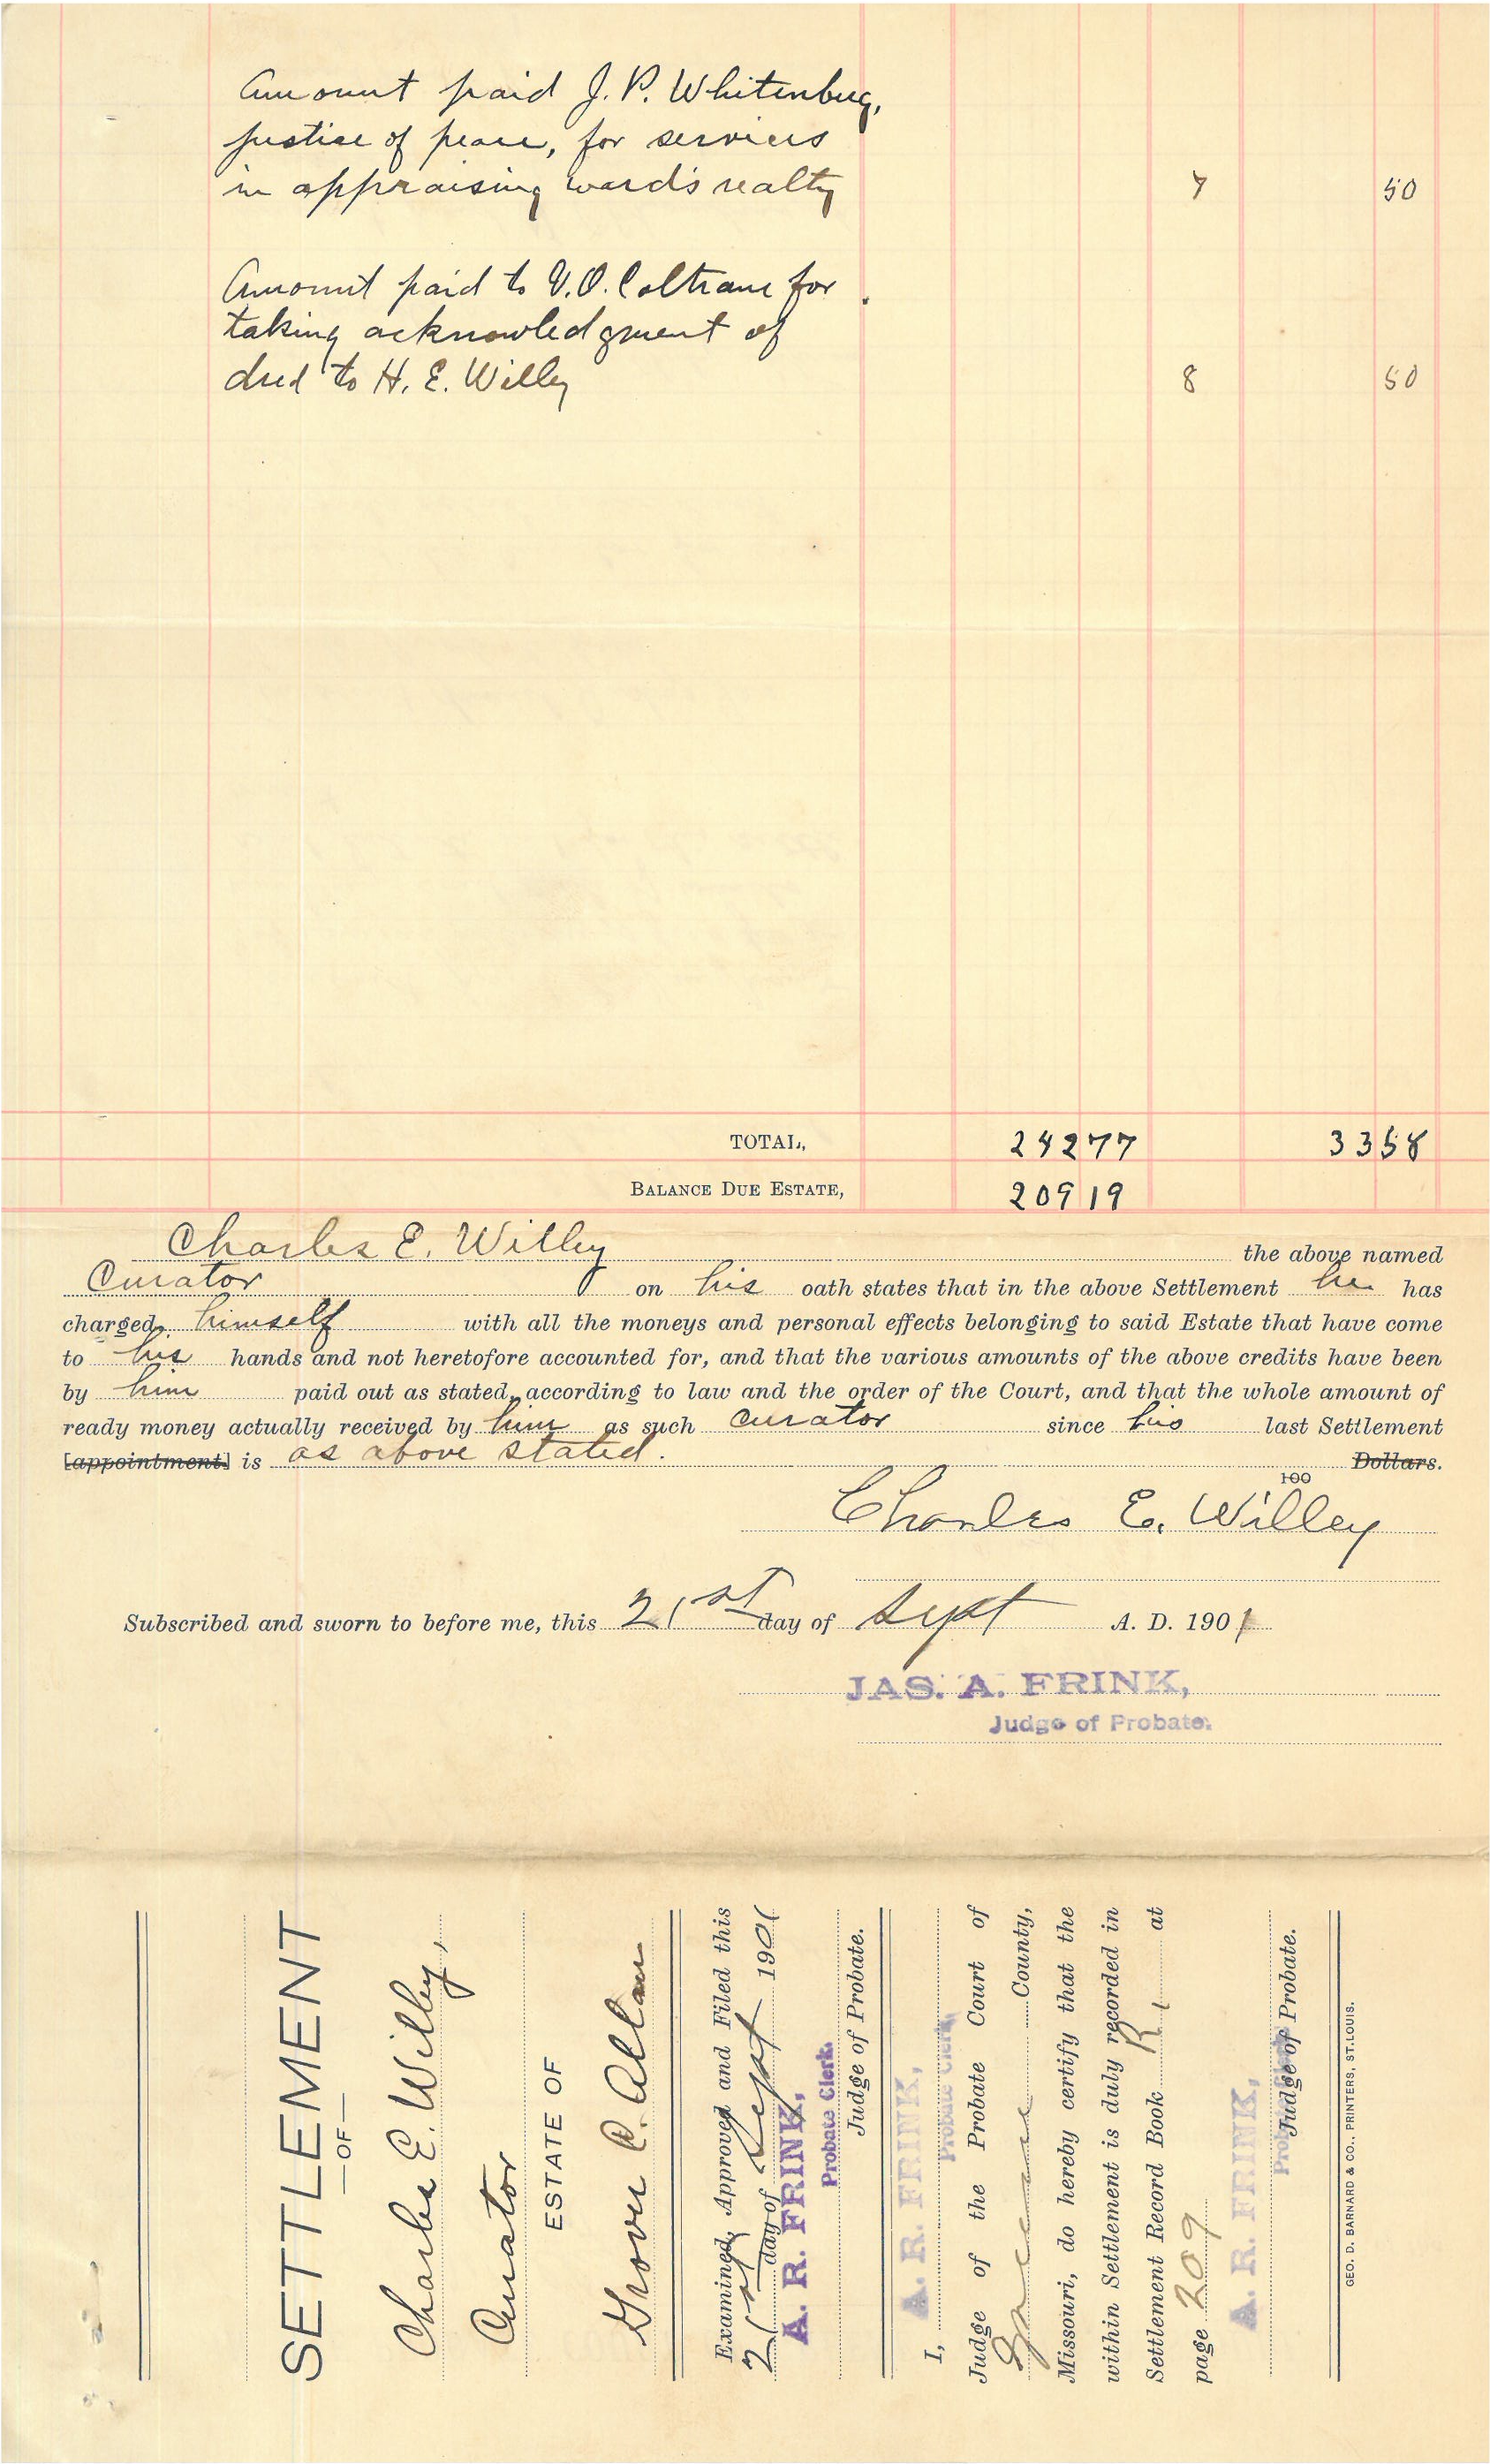 Amount paid J. P. Whitenburg,
justice of peace, for services
in appraising ward's realty 7 50
Amount paid to V. O. Coltrane for
taking acknowledgment of
deed to H. E. Willey 8 50
TOTAL, 242 77 33 58
BALANCE DUE ESTATE, 209 19
Charles E. Willey the above named
Curator on his oath states that in the above Settlement he has
charged himself with all the moneys and personal effects belonging to said Estate that have come
to his hands and not heretofore accounted for, and that the various amounts of the above credits have been
by him paid out as stated, according to law and the order of the Court, and that the whole amount of
ready money actually received by him as such curator since his last Settlement
[appointment] is as above stated. Dollars.
100
Charles E. Willey
Subscribed and sworn to before me, this 21st day of Sept A. D. 1901
JAS. A. FRINK,
Judge of Probate.
SETTLEMENT
—OF—
Charles E. Willey,
Curator
ESTATE OF
Grover C. Allen
Examined, Approved and Filed this
21st day of Sept 1901
A. R. FRINK,
Probate Clerk.
Judge of Probate.
I, A. R. FRINK,
Probate Clerk,
Judge of the Probate Court of
Greene County,
Missouri, do hereby certify that the
within Settlement is duly recorded in
Settlement Record Book R1 at
page 209
A. R. FRINK,
Probate Clerk
Judge of Probate.
GEO. D. BARNARD & CO., PRINTERS, ST. LOUIS.